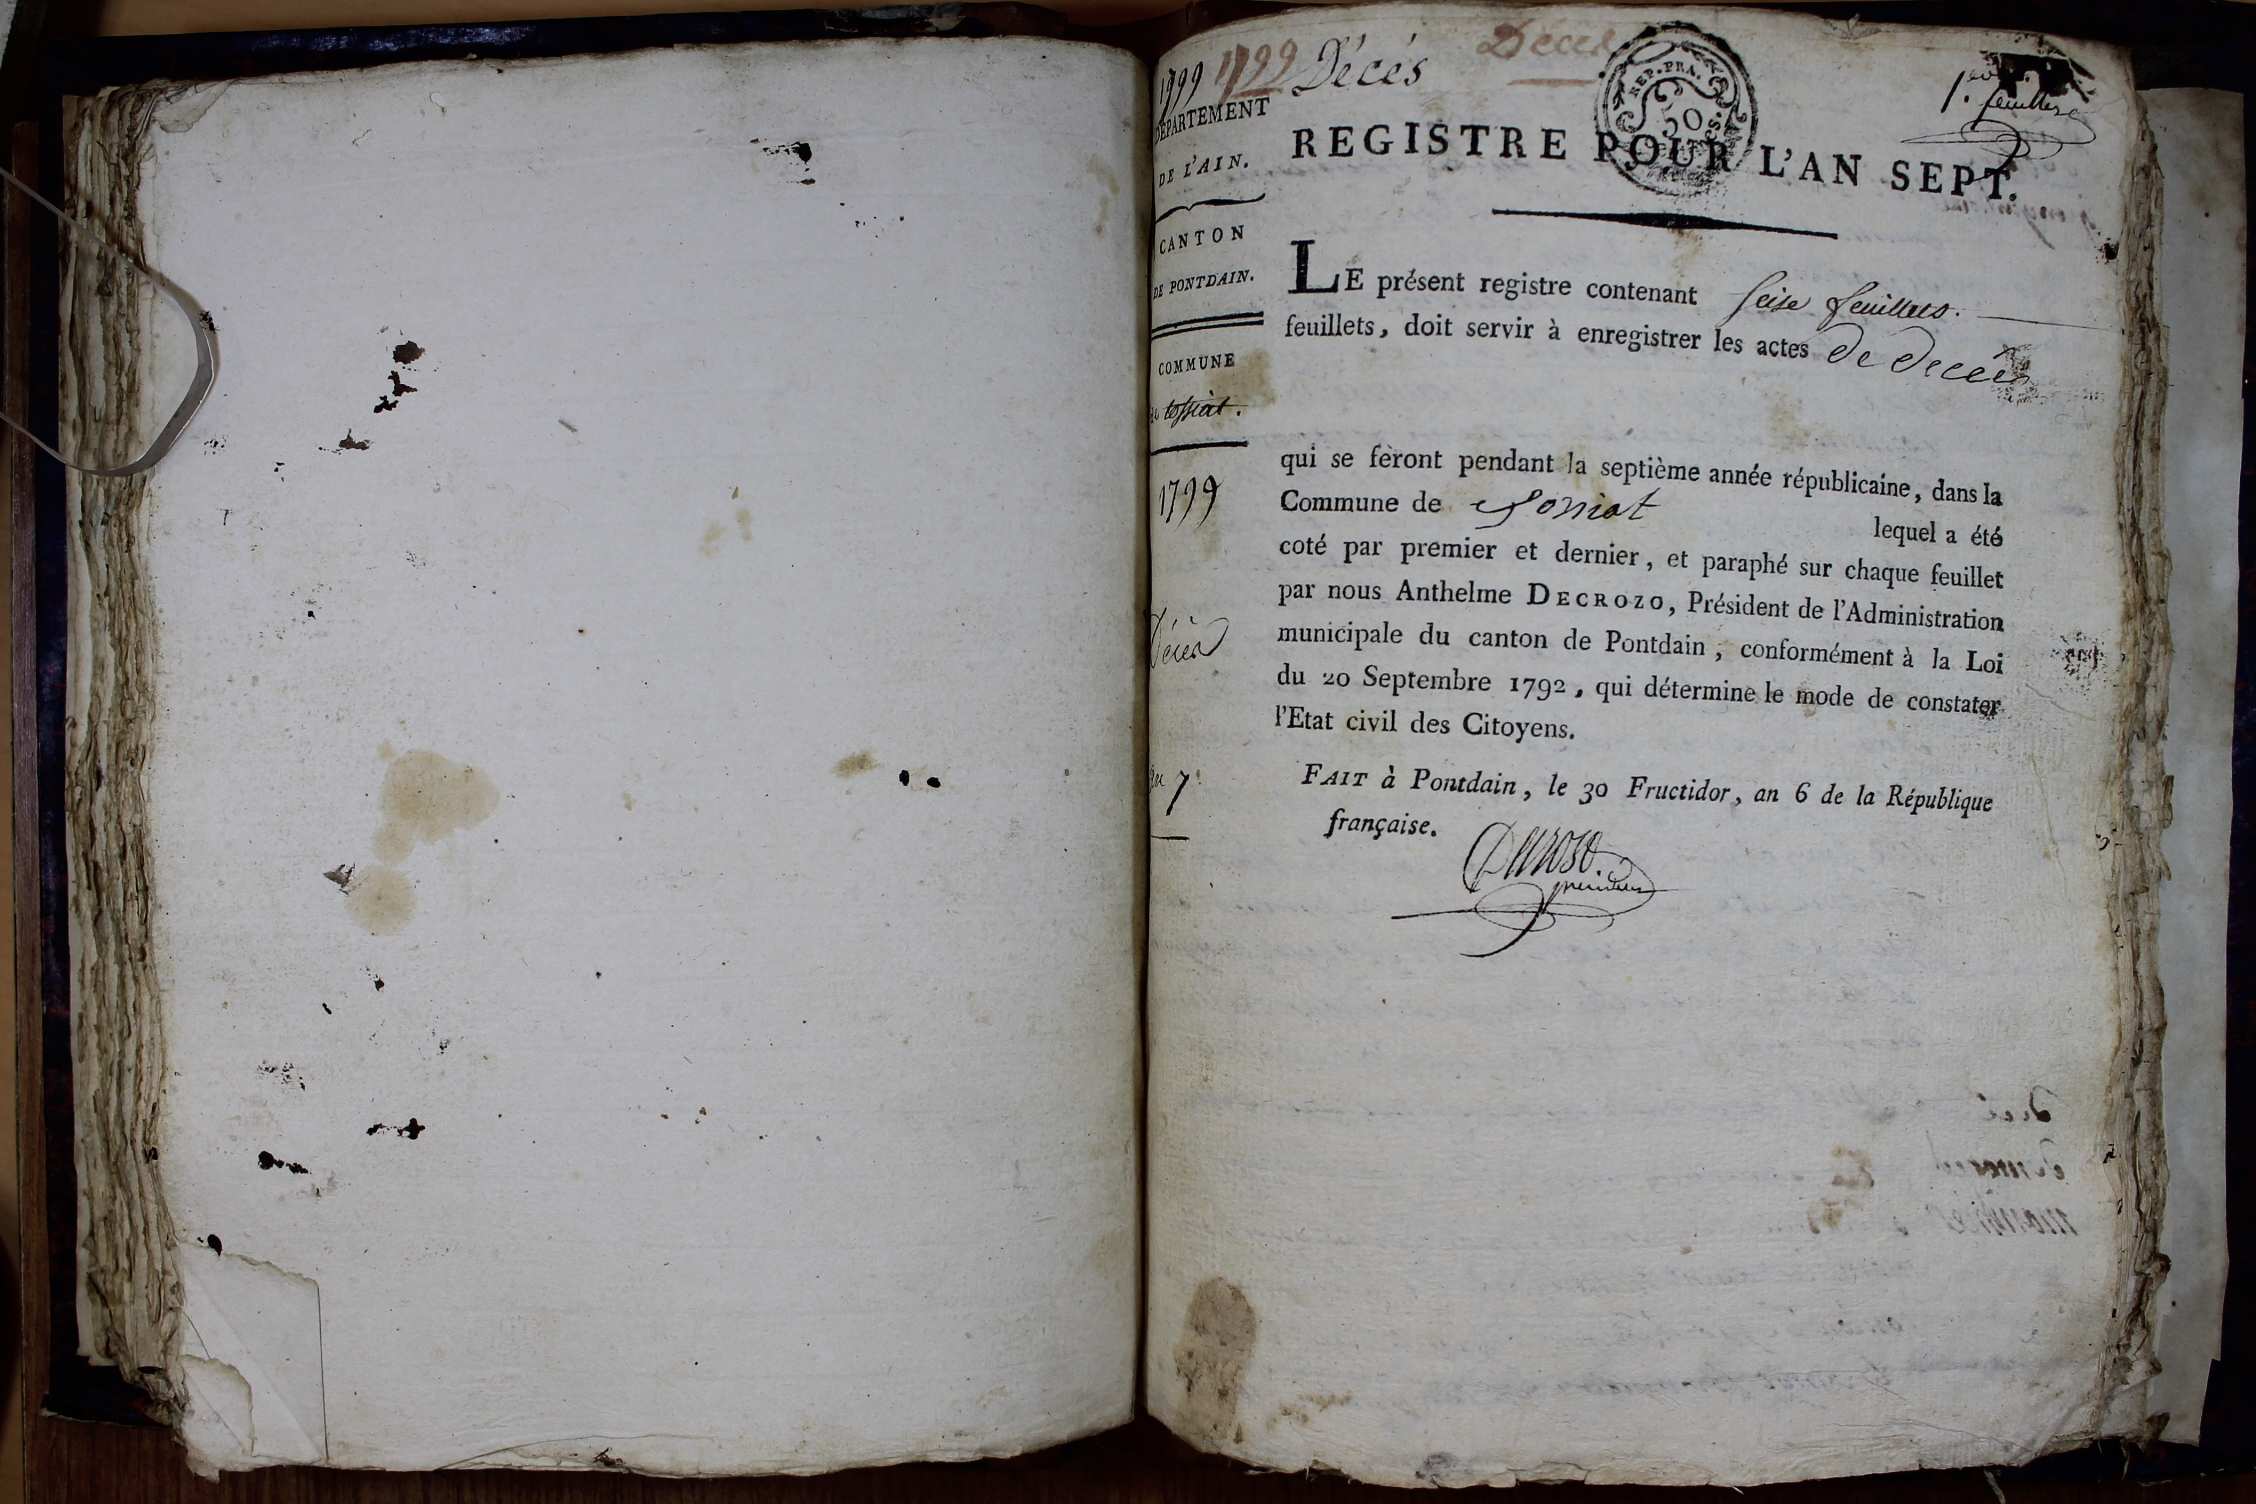 1799 1799 Décès Décès
1.er feuillet
DÉPARTEMENT
DE L'AIN.
CANTON
DE PONTDAIN.
COMMUNE
de tossiat.
1799
Décès
an 7
REP. FRA.
50
REGISTRE POUR L'AN SEPT.
LE présent registre contenant seise feuillets.
feuillets, doit servir à enregistrer les actes de decès
qui se feront pendant la septième année républicaine, dans la
Commune de lequel a été
coté par premier et dernier, et paraphé sur chaque feuillet
par nous Anthelme DECROZO, Président de l'Administration
municipale du canton de Pontdain, conformément à la Loi
du 20 Septembre 1792, qui détermine le mode de constater
l'Etat civil des Citoyens.
FAIT à Pontdain, le 30 Fructidor, an 6 de la République
française.
Decroso